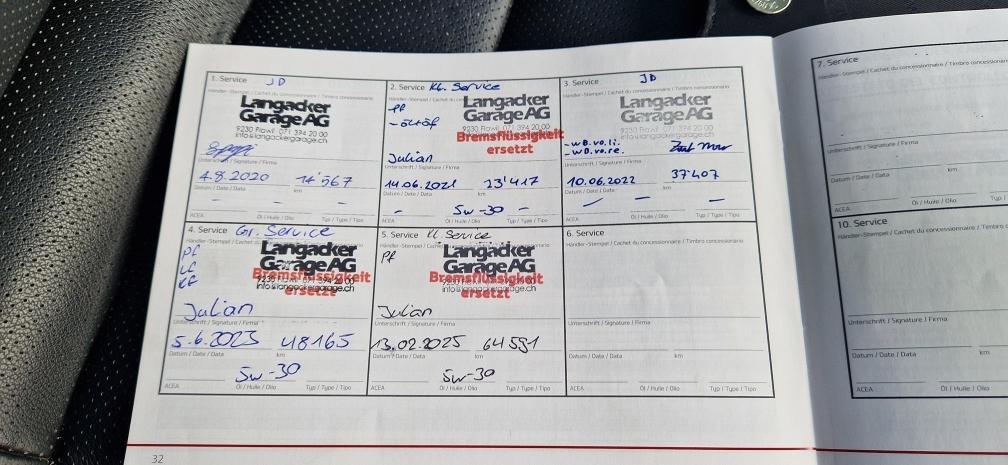 1. Service JD
Händler-Stempel / Cachet du concessionnaire / Timbro concessionario
Langacker
Garage AG
9230 Flawil 071 394 20 00
info@langackergarage.ch
Unterschrift / Signature / Firma
4.8.2020 14'567
Datum / Date / Data km
- - -
ACEA Öl / Huile / Olio Typ / Type / Tipo
2. Service Kl. Service
Händler-Stempel / Cachet du
PF
Langacker
Garage AG
9230 Flawil 071 394 20 00
Bremsflüssigkeit
ersetzt
Julian
Unterschrift / Signature / Firma
14.06.2021 23'417
Datum / Date / Data km
- 5w-30 -
ACEA Öl / Huile / Olio Typ / Type / Tipo
3. Service JD
Händler-Stempel / Cachet du concessionnaire / Timbro concessionario
Langacker
Garage AG
9230 Flawil 071 394 20 00
info@langackergarage.ch
-WB.vo.li.
-WB.vo.re.
Unterschrift / Signature / Firma
10.06.2022 37'407
Datum / Date / Data km
- - -
ACEA Öl / Huile / Olio Typ / Type / Tipo
4. Service Gr. Service
PF
LF
KF
Langacker
Garage AG
9230 Flawil 071 394 20 00
Bremsflüssigkeit
info@langackergarage.ch
ersetzt
Julian
Unterschrift / Signature / Firma
5.6.2023 48165
Datum / Date / Data km
5w-30
ACEA Öl / Huile / Olio Typ / Type / Tipo
5. Service Kl Service
Händler-Stempel / Cachet
PF
Langacker
Garage AG
Bremsflüssigkeit
info@langackergarage.ch
ersetzt
Julian
Unterschrift / Signature / Firma
13.02.2025 64591
Datum / Date / Data km
5w-30
ACEA Öl / Huile / Olio Typ / Type / Tipo
6. Service
Händler-Stempel / Cachet du concessionnaire / Timbro concessionario
Unterschrift / Signature / Firma
Datum / Date / Data km
ACEA Öl / Huile / Olio Typ / Type / Tipo
32
7. Service
Händler-Stempel / Cachet du concessionnaire / Timbro
Unterschrift / Signature / Firma
Datum / Date / Data km
ACEA Öl / Huile / Olio Typ / Type / Tipo
10. Service
Händler-Stempel / Cachet du concessionnaire / Timbro
Unterschrift / Signature / Firma
Datum / Date / Data km
ACEA Öl / Huile / Olio Typ / Type / Tipo